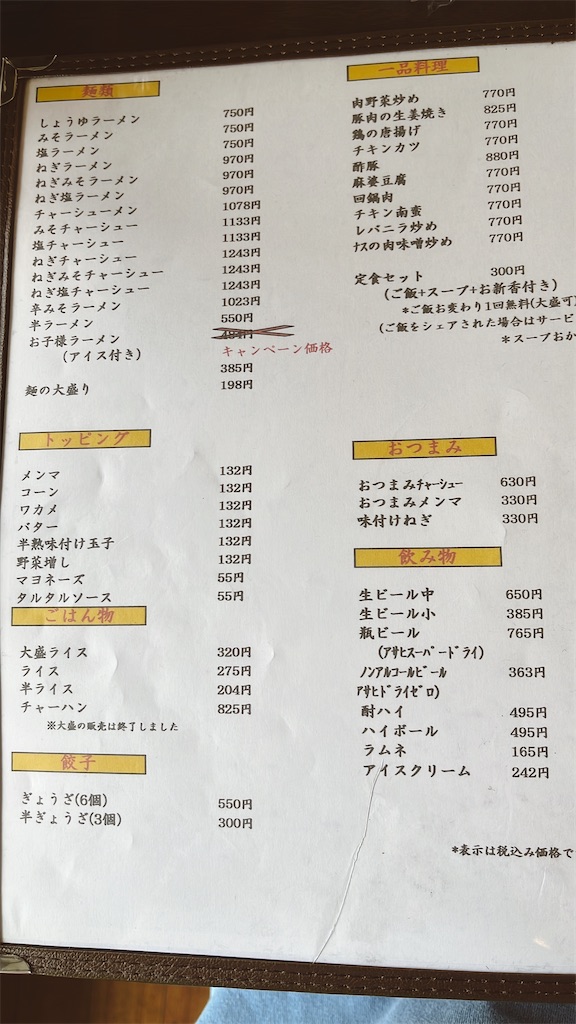 麺類
しょうゆラーメン 750円
みそラーメン 750円
塩ラーメン 750円
ねぎラーメン 970円
ねぎみそラーメン 970円
ねぎ塩ラーメン 970円
チャーシューメン 1078円
みそチャーシュー 1133円
塩チャーシュー 1133円
ねぎチャーシュー 1243円
ねぎみそチャーシュー 1243円
ねぎ塩チャーシュー 1243円
辛みそラーメン 1023円
半ラーメン 550円
お子様ラーメン
(アイス付き) キャンペーン価格
385円
麺の大盛り 198円
トッピング
メンマ 132円
コーン 132円
ワカメ 132円
バター 132円
半熟味付け玉子 132円
野菜増し 132円
マヨネーズ 55円
タルタルソース 55円
ごはん物
大盛ライス 320円
ライス 275円
半ライス 204円
チャーハン 825円
※大盛の販売は終了しました
餃子
ぎょうざ(6個) 550円
半ぎょうざ(3個) 300円
一品料理
肉野菜炒め 770円
豚肉の生姜焼き 825円
鶏の唐揚げ 770円
チキンカツ 770円
酢豚 880円
麻婆豆腐 770円
回鍋肉 770円
チキン南蛮 770円
レバニラ炒め 770円
ﾅｽの肉味噌炒め 770円
定食セット 300円
(ご飯+スープ+お新香付き)
*ご飯お変わり1回無料(大盛可)
(ご飯をシェアされた場合はサービ
*スープおか
おつまみ
おつまみﾁｬｰｼｭｰ 630円
おつまみメンマ 330円
味付けねぎ 330円
飲み物
生ビール中 650円
生ビール小 385円
瓶ビール 765円
(ｱｻﾋｽｰﾊﾟｰﾄﾞﾗｲ)
ﾉﾝｱﾙｺｰﾙﾋﾞｰﾙ 363円
ｱｻﾋﾄﾞﾗｲｾﾞﾛ)
酎ハイ 495円
ハイボール 495円
ラムネ 165円
アイスクリーム 242円
*表示は税込み価格で